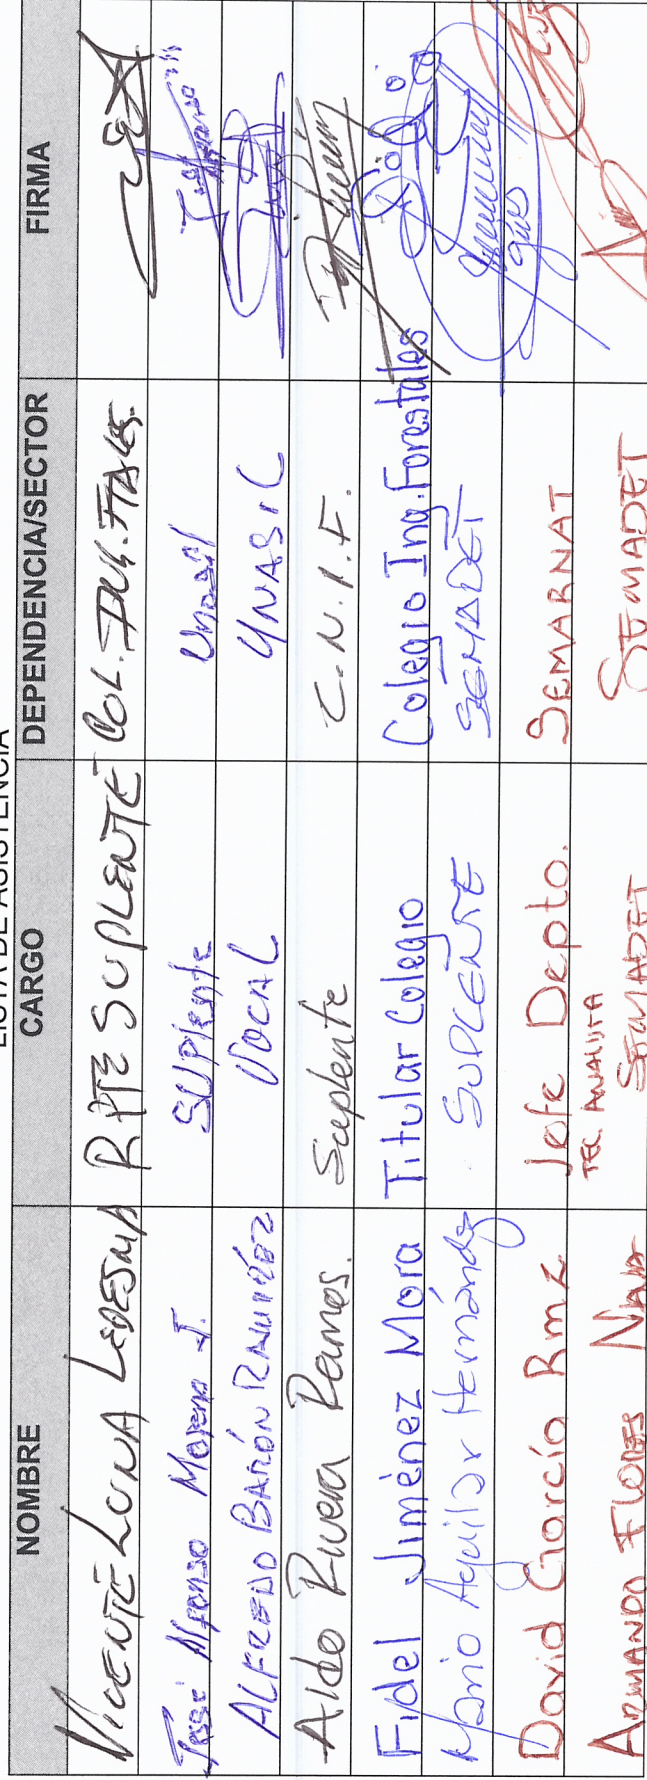 LISTA DE ASISTENCIA
NOMBRE CARGO DEPENDENCIA/SECTOR FIRMA
VICENTE LUNA LEDESMA RPTE SUPLENTE COL. ING. FTALES.
José Alfonso Moreno J. SUPlente Unasil
ALFREDO BARÓN RAMIREZ VOCAL UNASIL
Aldo Rivera Ramos. Suplente C.N.I.F.
Fidel Jiménez Mora Titular Colegio Colegio Ing. Forestales
Mario Aguilar Hernández SUPLENTE SEMADET
David García Rmz Jefe Depto. SEMARNAT
ARMANDO FLORES NAVA TEC. ANALISTA SEMADET SEMADET